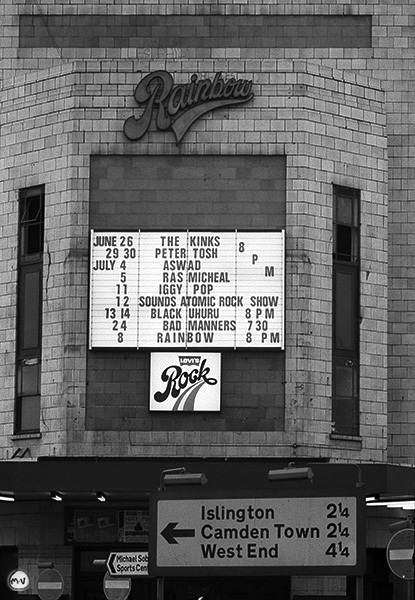 Rainbow
JUNE 26 THE KINKS 8
29 30 PETER TOSH P
JULY 4 ASWAD M
5 RAS MICHEAL
11 IGGY POP
12 SOUNDS ATOMIC ROCK SHOW
13 14 BLACK UHURU 8 PM
24 BAD MANNERS 7 30
8 RAINBOW 8 PM
LEVI'S
Rock
Islington 2¼
Camden Town 2¼
West End 4¼
Michael Sob
Sports Cent